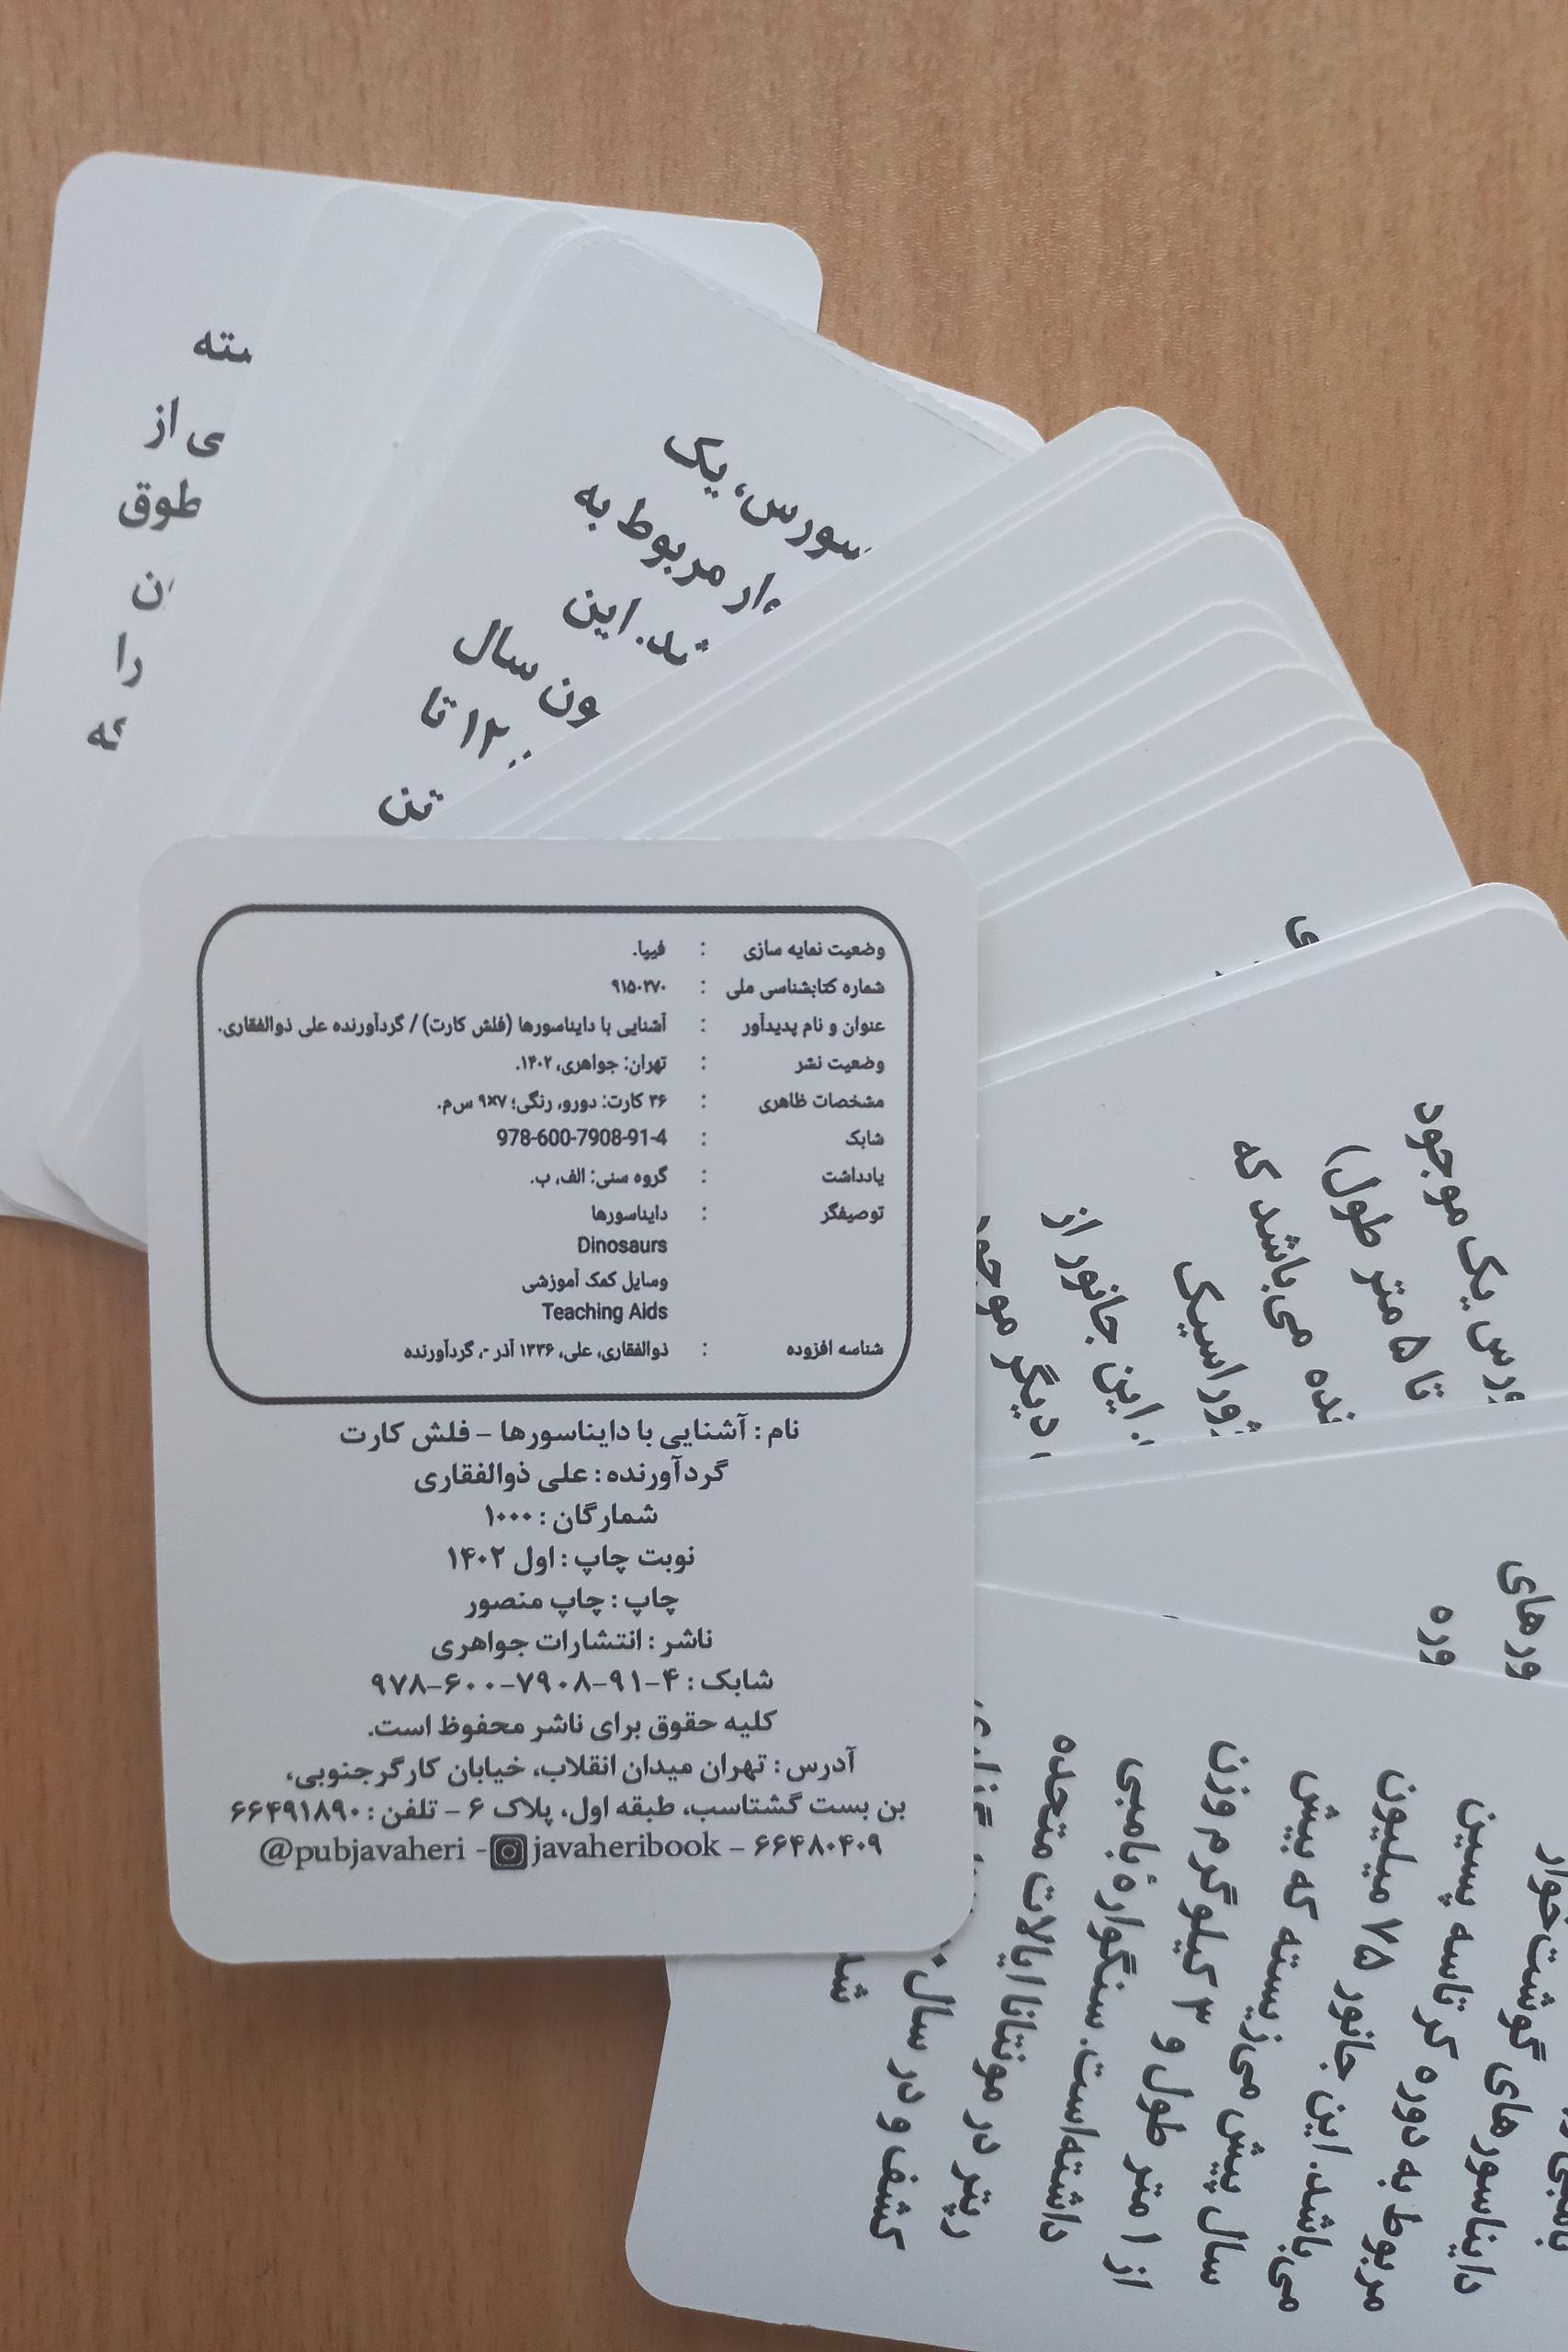 وضعیت نمایه سازی : فیپا.
شماره کتابشناسی ملی : ۹۱۵۰۲۷۰
عنوان و نام پدیدآور : آشنایی با دایناسورها (فلش کارت) / گردآورنده علی ذوالفقاری.
وضعیت نشر : تهران: جواهری، ۱۴۰۲.
مشخصات ظاهری : ۳۶ کارت: دورو، رنگی؛ ۷×۹ س‌م.
شابک : 978-600-7908-91-4
یادداشت : گروه سنی: الف، ب.
توصیفگر : دایناسورها
Dinosaurs
وسایل کمک آموزشی
Teaching Aids
شناسه افزوده : ذوالفقاری، علی، ۱۳۳۶ آذر -، گردآورنده
نام : آشنایی با دایناسورها – فلش کارت
گردآورنده : علی ذوالفقاری
شمارگان : ۱۰۰۰
نوبت چاپ : اول ۱۴۰۲
چاپ : چاپ منصور
ناشر : انتشارات جواهری
شابک : ۴-۹۱-۷۹۰۸-۶۰۰-۹۷۸
کلیه حقوق برای ناشر محفوظ است.
آدرس : تهران میدان انقلاب، خیابان کارگر جنوبی،
بن بست گشتاسب، طبقه اول، پلاک ۶ – تلفن : ۶۶۴۹۱۸۹۰
@pubjavaheri - javaheribook – ۶۶۴۸۰۴۰۹
ی از
طوق
را
سورس، یک
مربوط به
این
ون سال
۱۲۰۰ تا
تن
یک موجود
تا ۵ متر طول)
می‌باشد که
ژوراسیک
این جانور از
دیگر
گوشت‌خوار
دایناسورهای کرتاسه پسین
مربوط به دوره
می‌باشد. این جانور ۷۵ میلیون
سال پیش می‌زیسته که بیش
از ۱ متر طول و ۳ کیلوگرم وزن
داشته‌است. سنگوارهٔ بامبی
رپتر در مونتانا ایالات متحده
کشف و در سال